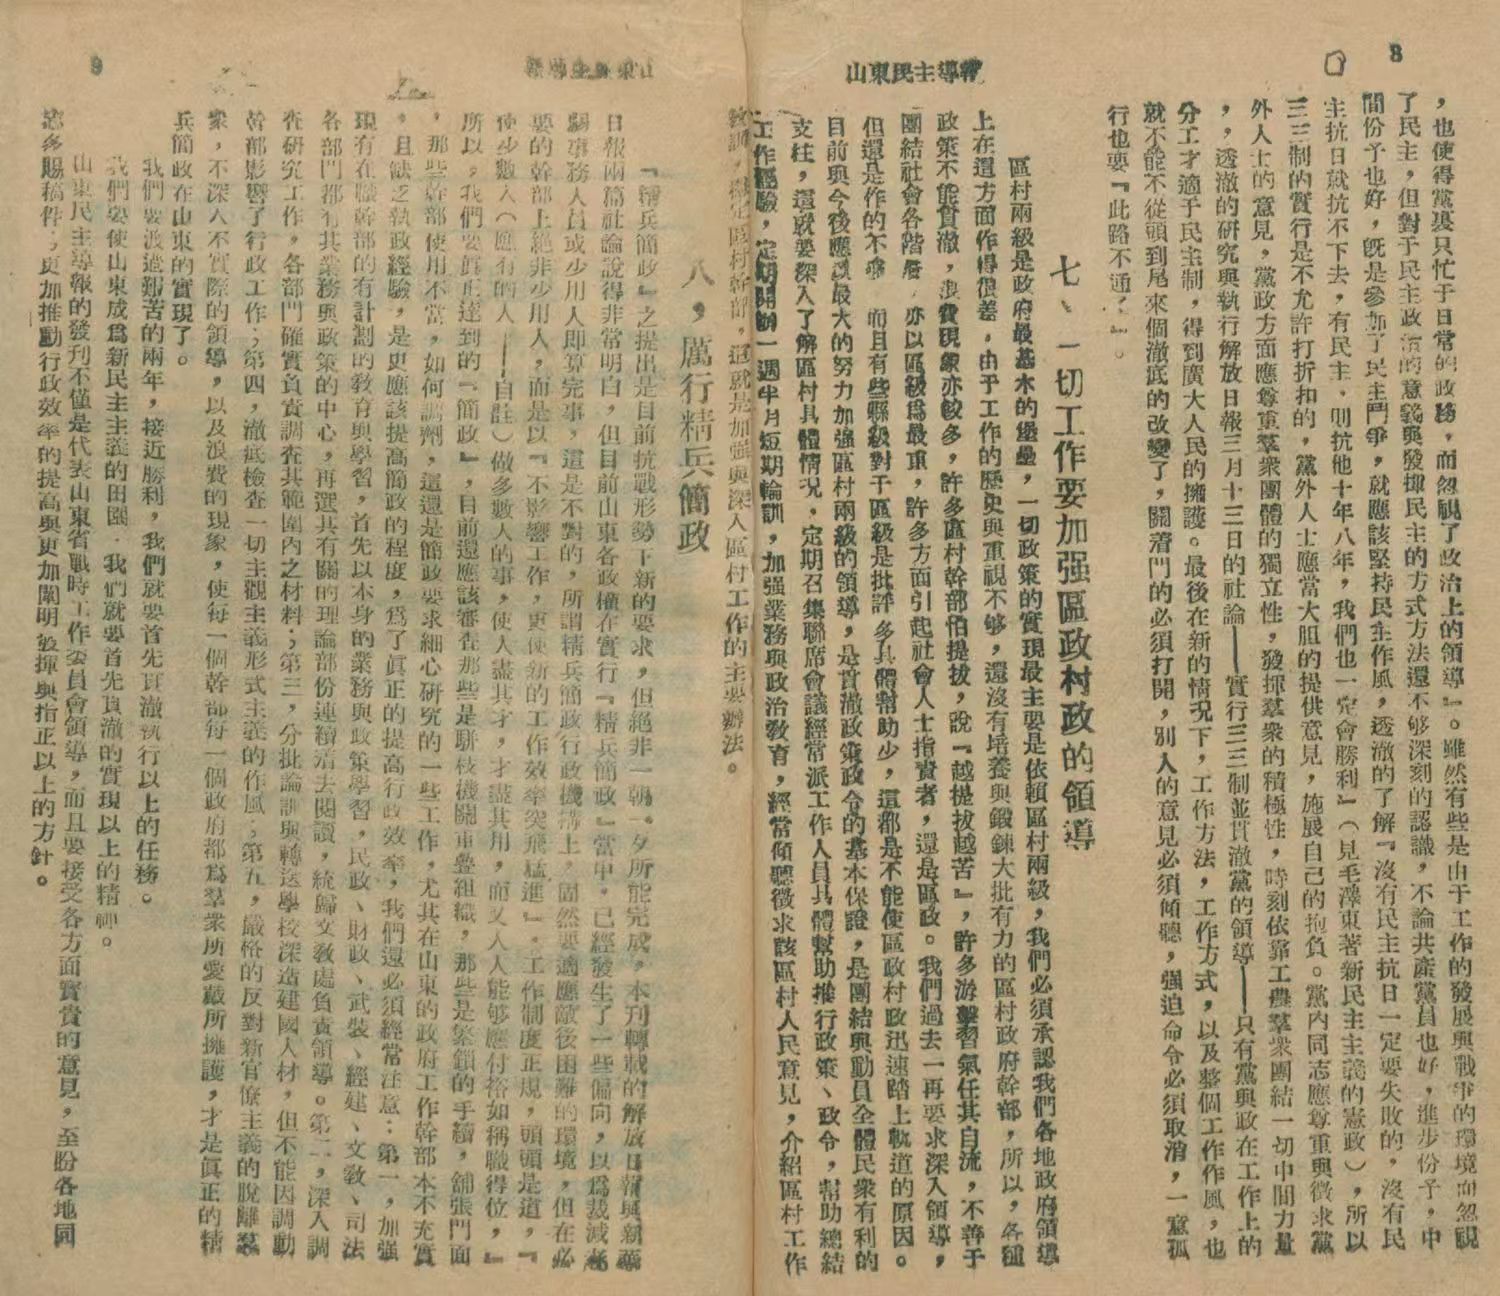 8
山東民主導報
，也使得黨裏只忙于日常的政務，而忽視了政治上的領導』。雖然有些是由于工作的發展與戰爭的環境而忽視
了民主，但對于民主政演的意義與發揮民主的方式方法還不够深刻的認識，不論共產黨員也好，進步份予，中
間份予也好，旣是參加了民主鬥爭，就應該堅持民主作風，透澈的了解『沒有民主抗日一定要失敗的，沒有民
主抗日就抗不下去，有民主，則抗他十年八年，我們也一定會勝利』（見毛澤東著新民主主義的憲政），所以
三三制的實行是不允許打折扣的，黨外人士應當大胆的提供意見，施展自己的抱負。黨內同志應尊重與徵求黨
外人士的意見，黨政方面應尊重羣衆團體的獨立性，發揮羣衆的積極性，時刻依靠工農羣衆團結一切中間力量
，透澈的研究與執行解放日報三月十三日的社論——實行三三制並貫澈黨的領導——只有黨與政在工作上的
分工才適于民主制，得到廣大人民的擁護。最後在新的情況下，工作方法，工作方式，以及整個工作作風，也
就不能不從頭到尾來個澈底的改變了，關着門的必須打開，別人的意見必須傾聽，强迫命令必須取消，一意孤
行也要『此路不通，』。
七、一切工作要加强區政村政的領導
區村兩級是政府最基木的堡壘，一切政策的實現最主要是依賴區村兩級，我們必須承認我們各地政府領導
上在這方面作得很差，由于工作的歷史與重視不够，還沒有培養與鍛鍊大批有力的區村政府幹部，所以，各種
政策不能貫澈，浪費現象亦較多，許多區村幹部怕提拔，說『越提拔越苦』，許多游擊習氣任其自流，不善于
團結社會各階層，亦以區級爲最重，許多方面引起社會人士指責者，還是區政。我們過去一再要求深入領導，
但還是作的不够，而且有些縣級對于區級是批評多具體幫助少，這都是不能使區政村政迅速踏上軌道的原因。
目前與今後應以最大的努力加强區村兩級的領導，是貫澈政策政令的基本保證，是團結與動員全體民衆有利的
支柱，這就要深入了解區村具體情況，定期召集聯席會議經常派工作人員具體幫助推行政策、政令，幫助總結
工作經驗，定期開辦一週半月短期輪訓，加强業務與政治敎育，經常傾聽徵求該區村人民意見，介紹區村工作
9
山東民主導報
敎訓，穩定區村幹部，這就是加强與深入區村工作的主要辦法。
八，厲行精兵簡政
『精兵簡政』之提出是目前抗戰形勢下新的要求，但絕非一朝一夕所能完成，本刊轉載的解放日報與新華
日報兩篇社論說得非常明白，但目前山東各政權在實行『精兵簡政』當中，已經發生了一些偏向，以爲裁減
事務人員或少用人即算完事，這是不對的，所謂精兵簡政行政機構上，固然要適應敵後困難的環境，但在必
要的幹部上絕非少用人，而是以『不影響工作，更使新的工作效率突飛猛進』，工作制度正規，頭頭是道，『
使少數人（應有的人——自註）做多數人的事，使人盡其才，才盡其用，而又人人能够應付裕如稱職得位，』
所以，我們要眞正達到的『簡政』，目前還應該審查那些是駢枝機關重疊組織，那些是繁鎖的手續，舖張門面
，那些幹部使用不當，如何調劑，這還是簡政要求細心研究的一些工作，尤其在山東的政府工作幹部本不充實
，且缺乏執政經驗，是更應該提高簡政的程度，爲了眞正的提高行政效率，我們還必須經常注意：第一，加強
現有在職幹部的有計劃的敎育與學習，首先以本身的業務與政策學習，民政、財政、武裝、經建、文敎、司法
各部門都有其業務與政策的中心，再選其有關的理論部份連續看去閱讀，統歸文敎處負責領導。第二，深入調
查研究工作，各部門確實負責調查其範圍內之材料；第三，分批論訓與轉送學校深造建國人材，但不能因調動
幹部影響了行政工作；第四，澈底檢查一切主觀主義形式主義的作風；第五，嚴格的反對新官僚主義的脫離羣
衆，不深入不實際的領導，以及浪費的現象，使每一個幹部每一個政府都爲羣衆所愛戴所擁護，才是眞正的精
兵簡政在山東的實現了。
我們要渡過艱苦的兩年，接近勝利，我們就要首先貫澈執行以上的任務。
我們要使山東成爲新民主主義的田園，我們就要首先貫澈的實現以上的精神。
山東民主導報的發刊不僅是代表山東省戰時工作委員會領導，而且要接受各方面寶貴的意見，至盼各地同
志多賜稿件，更加推動行政效率的提高與更加闡明發揮與指正以上的方針。